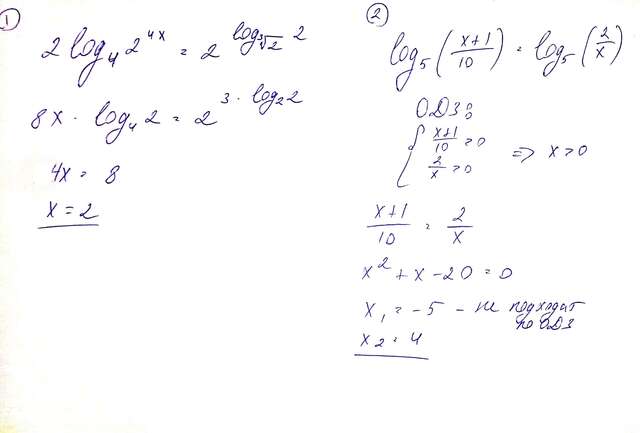 1
2 log₄ 2^(4x) = 2^(log_∛2 2)
8x · log₄ 2 = 2^(3 · log₂ 2)
4x = 8
x = 2
2
log₅ (x+1/10) = log₅ (2/x)
ОДЗ:
{ x+1/10 > 0
2/x > 0 => x > 0
x+1/10 = 2/x
x² + x - 20 = 0
x₁ = -5 - не подходит
по ОДЗ
x₂ = 4